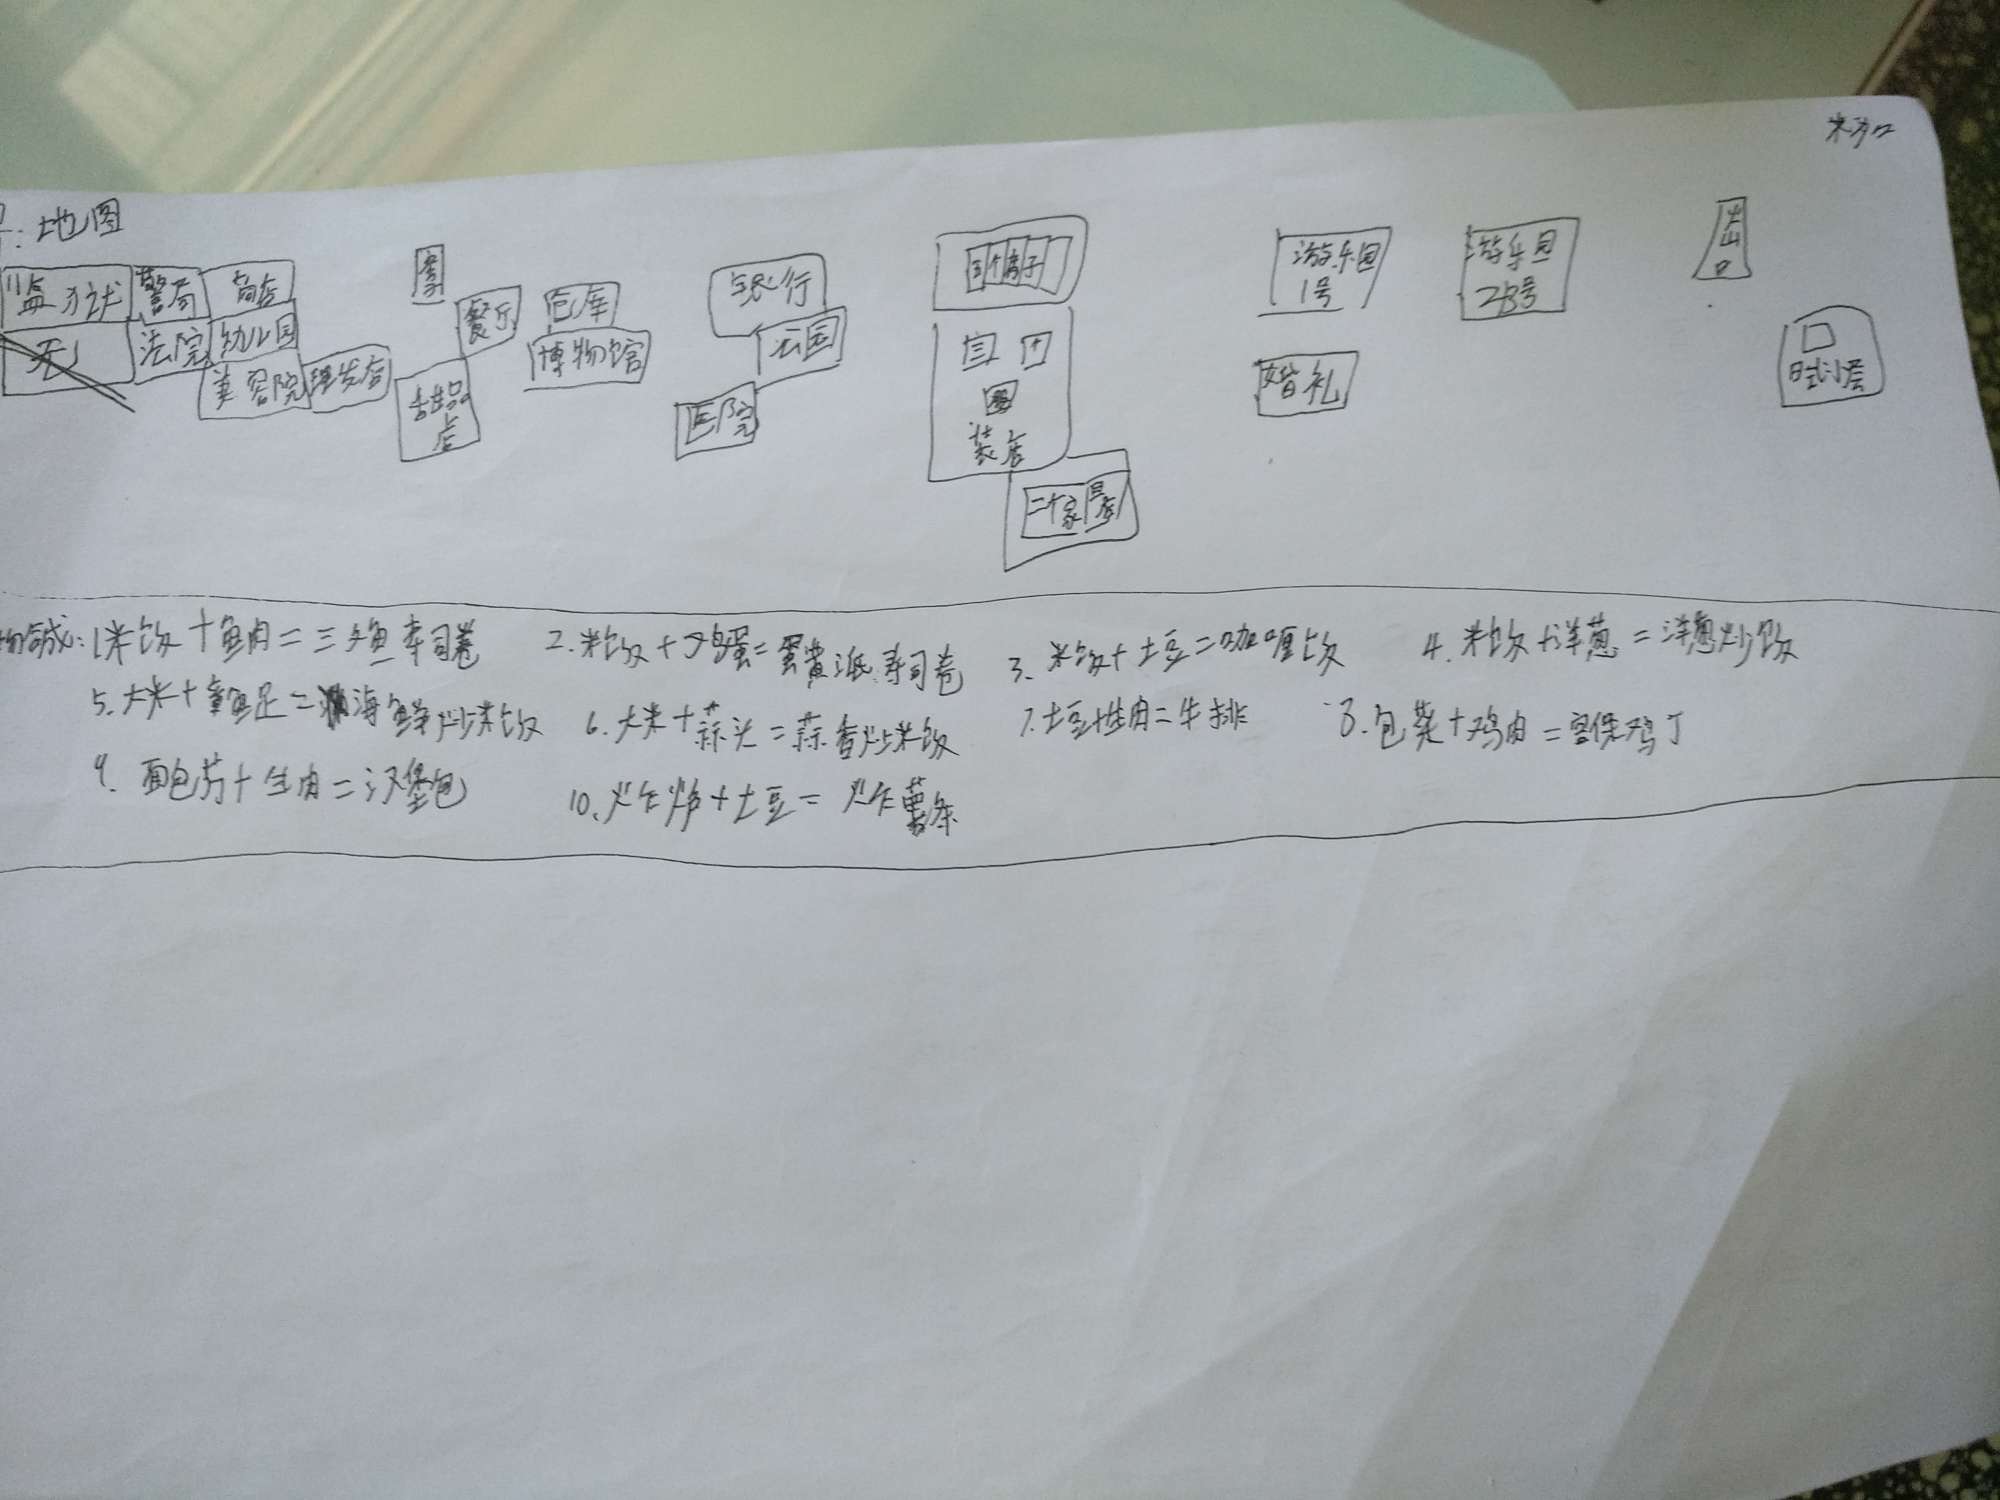 地图
监狱 警局 商店 餐厅 仓库 银行 五个房子 游乐园1号 游乐园2B号 出口
无 法院 幼儿园 博物馆 公园
美容院 理发店 甜品店 医院 装店 婚礼
二个家具店
1米饭+鱼肉=三文鱼寿司卷 2.米饭+鸡蛋=蛋黄派寿司卷 3.米饭+土豆=咖喱饭 4.米饭+洋葱=洋葱炒饭
5.大米+章鱼足=海鲜炒米饭 6.大米+蒜头=蒜香炒米饭 7.土豆+生肉=牛排 8.包菜+鸡肉=宫保鸡丁
9.面包片+生肉=汉堡包 10.炸炉+土豆=炸薯条